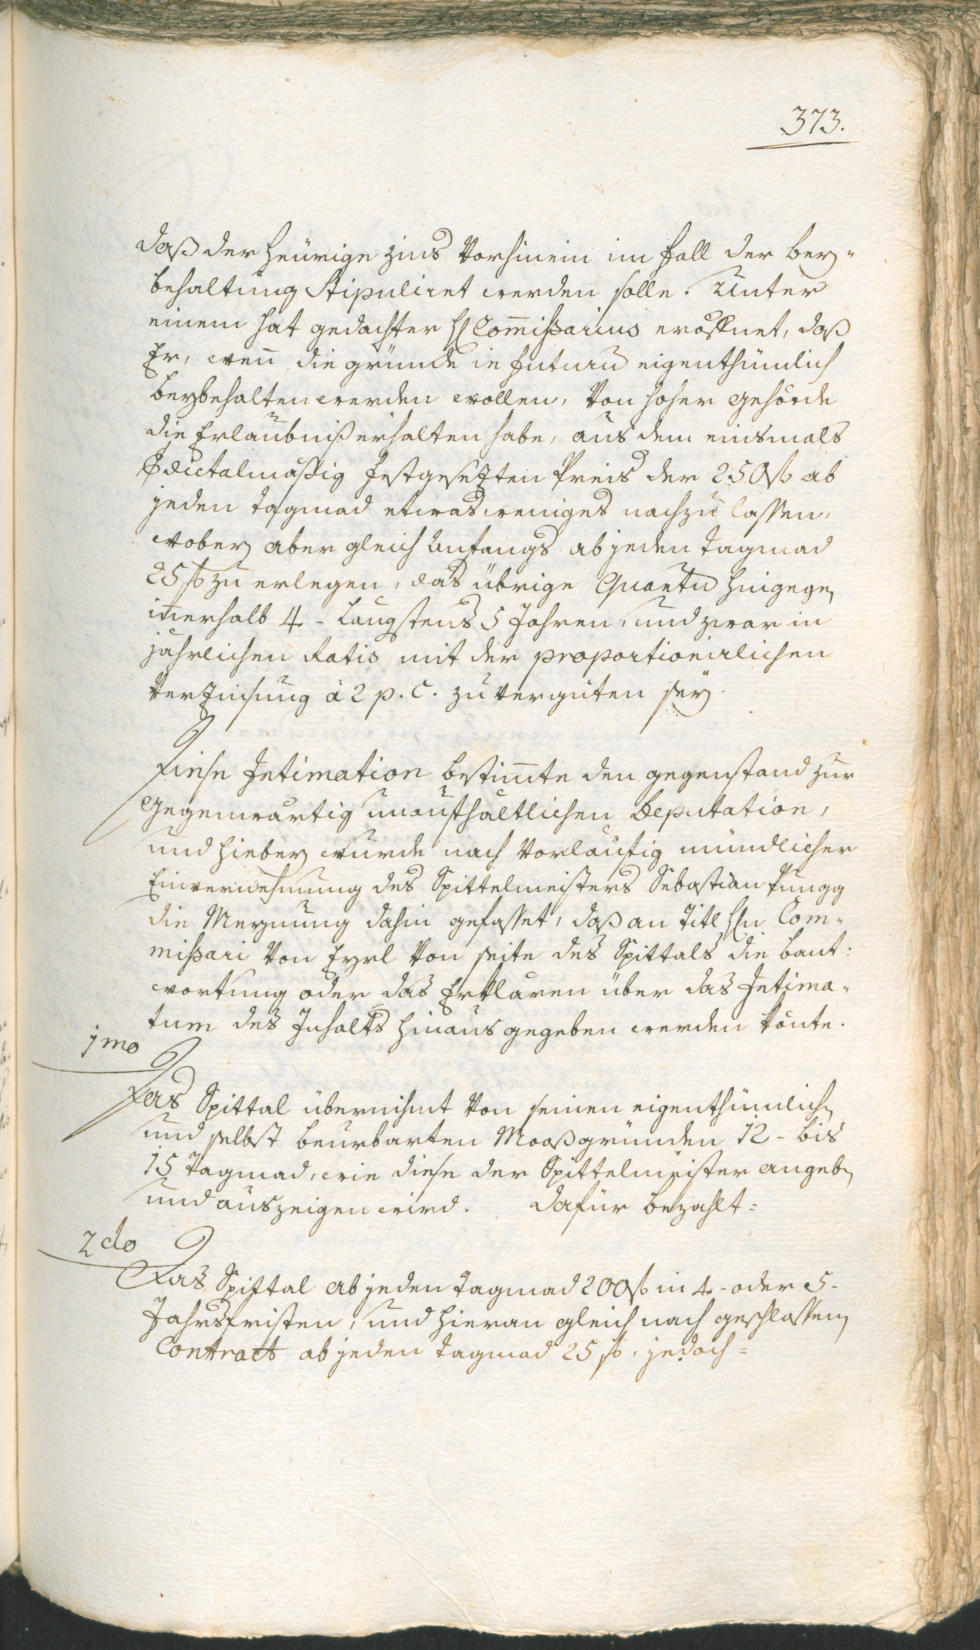 373.
daß der heurige Zins vorhinein im fall der bey-
behaltung stipuliret werden solle. Unter
einem hat gedachter H Com̄ißarius eröffnet, daß
Er, wen̄ die gründe in futurū eigenthümlich
beybehalten werden wollen, von hoher gehörde
die Erlaubniß erhalten habe, aus dem einsmals
Edictalmäßig festgesezten Preis der 250 f ab
jeden tagmad etwas weniges nachzulassen,
wobey aber gleich Anfangs ab jeden tagmad
25 f zu erlegen, das übrige Quantū hingegen
in̄erhalb 4 - längstens 5 Jahren, und zwar in
jährlichen Ratis mit der proportionirlichen
Verzinsung à 2 p. C. zu vergüten sey.
Diese Intimation bestim̄te den gegenstand zur
gegenwärtig unaufhältlichen Deputation,
und hiebey wurde nach vorläufig mündlicher
Einvernehmung des Spittelmeisters Sebastian Pungg
die Meynung dahin gefasset, daß an Titl Hn Com-
mißari von Eyrl von seite des Spittals die beant:
wortung oder das Erklären über das Intima-
tum des Inhalts hinaus gegeben werden kön̄te.
1mo
Das Spittal übernihmt von seinen eigenthümlich
und selbst beurbarten Moosgründen 12 - bis
15 Tagmad, wie diese der Spittelmeister angeben
und auszeigen wird. Dafür bezahlt:
2do
Das Spittal ab jeden Tagmad 200 f in 4 - oder 5 -
Jahrsfristen, und hieran gleich nach geschlossenen
Contract ab jeden tagmad 25 f, jedoch: